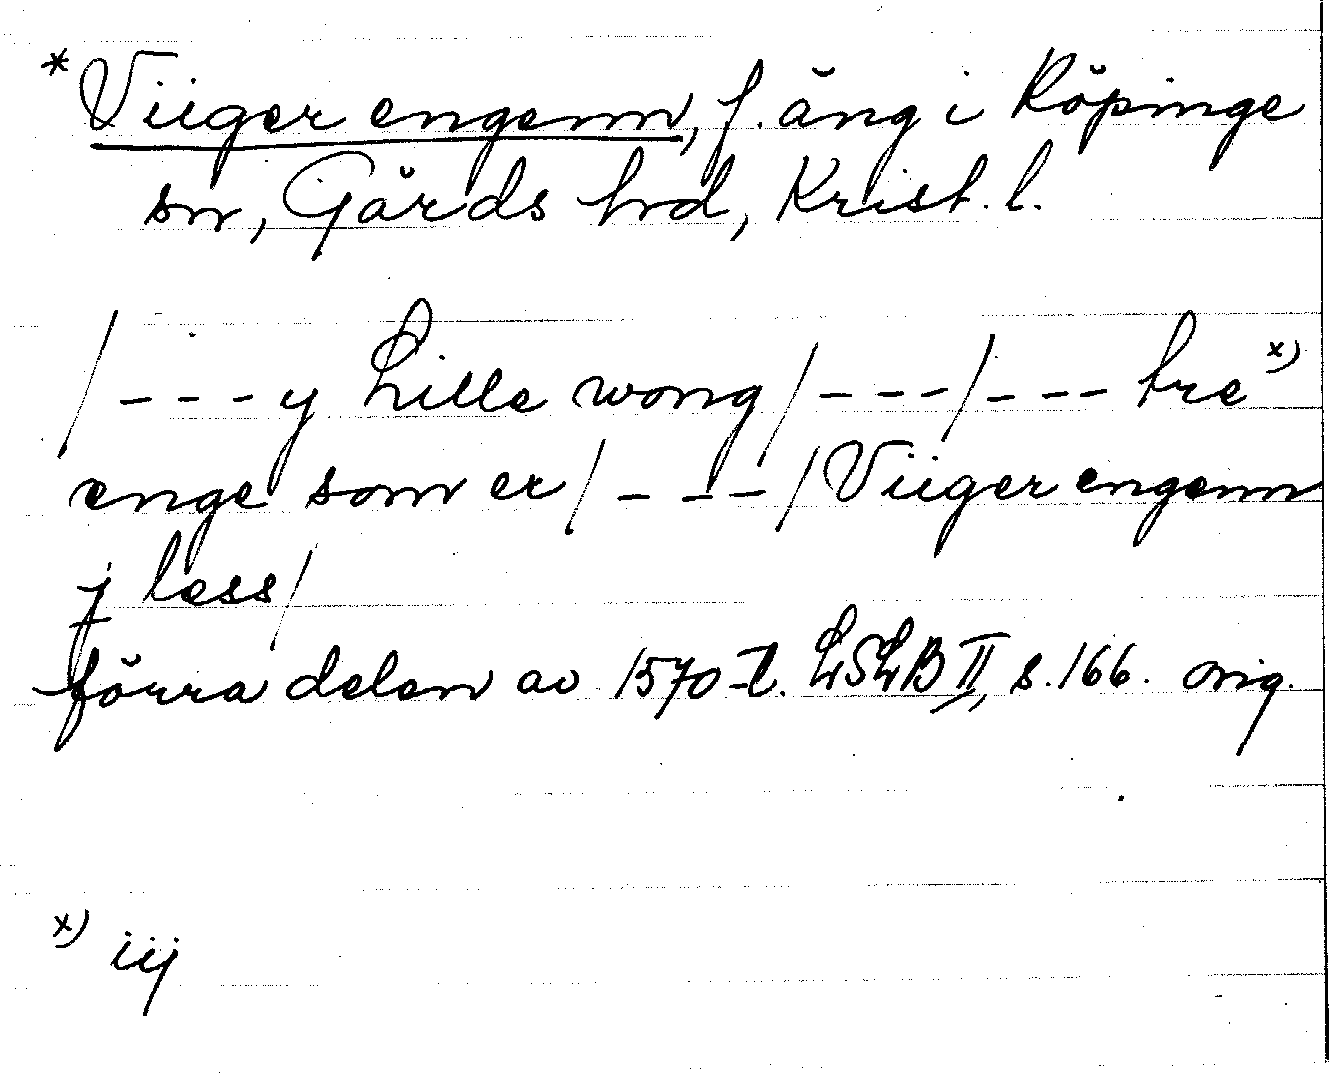 * Viiger engenn, f. äng i Köpinge
sn, Gärds hrd, Krist. l.
/---y Lille wong/---/---tre x)
enge som er/---/Viiger engenn
j less/
förra delen av 1570-t. LSLB II, s. 166. orig.
x) iij